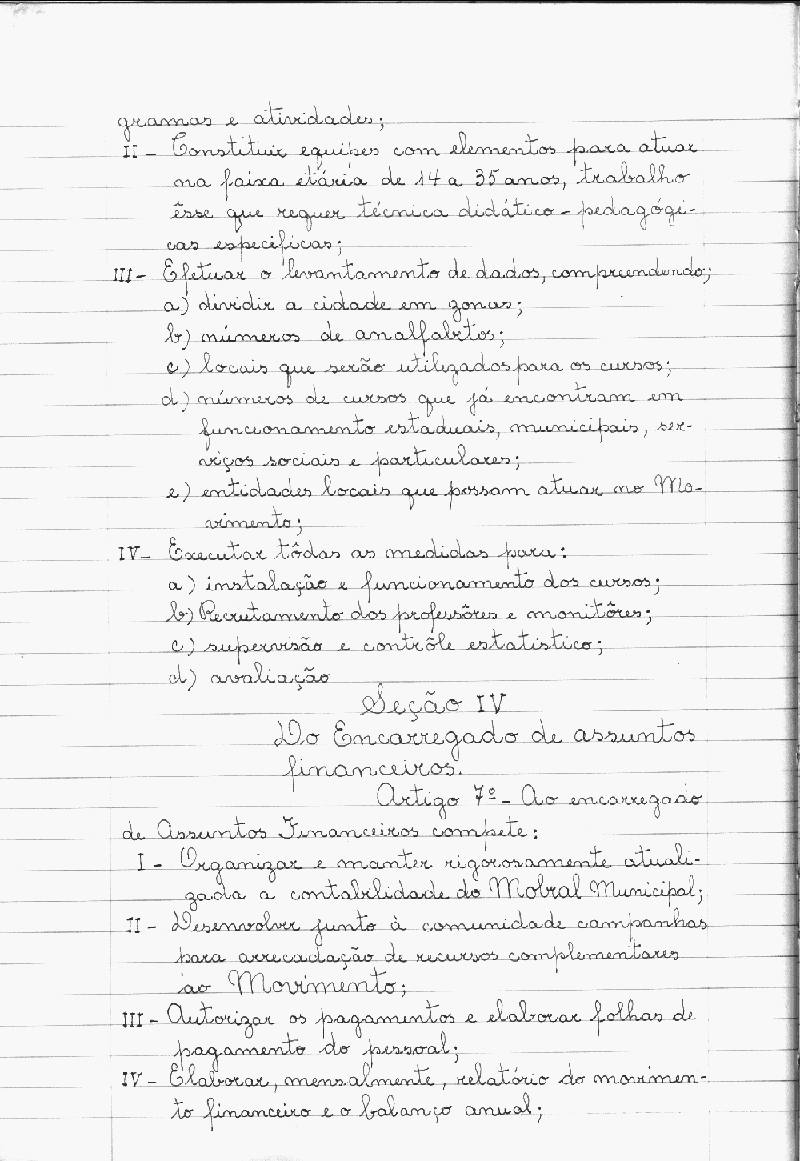 gramas e atividades;
II - Constituir equipes com elementos para atuar
na faixa etária de 14 a 35 anos, trabalho
êsse que requer técnica didático - pedagógi-
cas especificas;
III - Efetuar o levantamento de dados, compreendendo;
a) dividir a cidade em zonas;
b) números de analfabetos;
c) locais que serão utilizados para os cursos;
d) números de cursos que já encontram em
funcionamento estaduais, municipais, ser-
viços sociais e particulares;
e) entidades locais que possam atuar no Mo-
vimento;
IV - Executar tôdas as medidas para:
a) instalação e funcionamento dos cursos;
b) Recrutamento dos professôres e monitôres;
c) supervisão e contrôle estatistico;
d) avaliação
Seção IV
Do Encarregado de assuntos
financeiros.
Artigo 7º - Ao encarregado
de Assuntos Financeiros compete:
I - Organizar e manter rigorosamente atuali-
zada a contabilidade do Mobral Municipal;
II - Desenvolver junto à comunidade campanhas
para arrecadação de recursos complementares
ao Movimento;
III - Autorizar os pagamentos e elaborar folhas de
pagamento do pessoal;
IV - Elaborar, mensalmente, relatório do movimen-
to financeiro e o balanço anual;